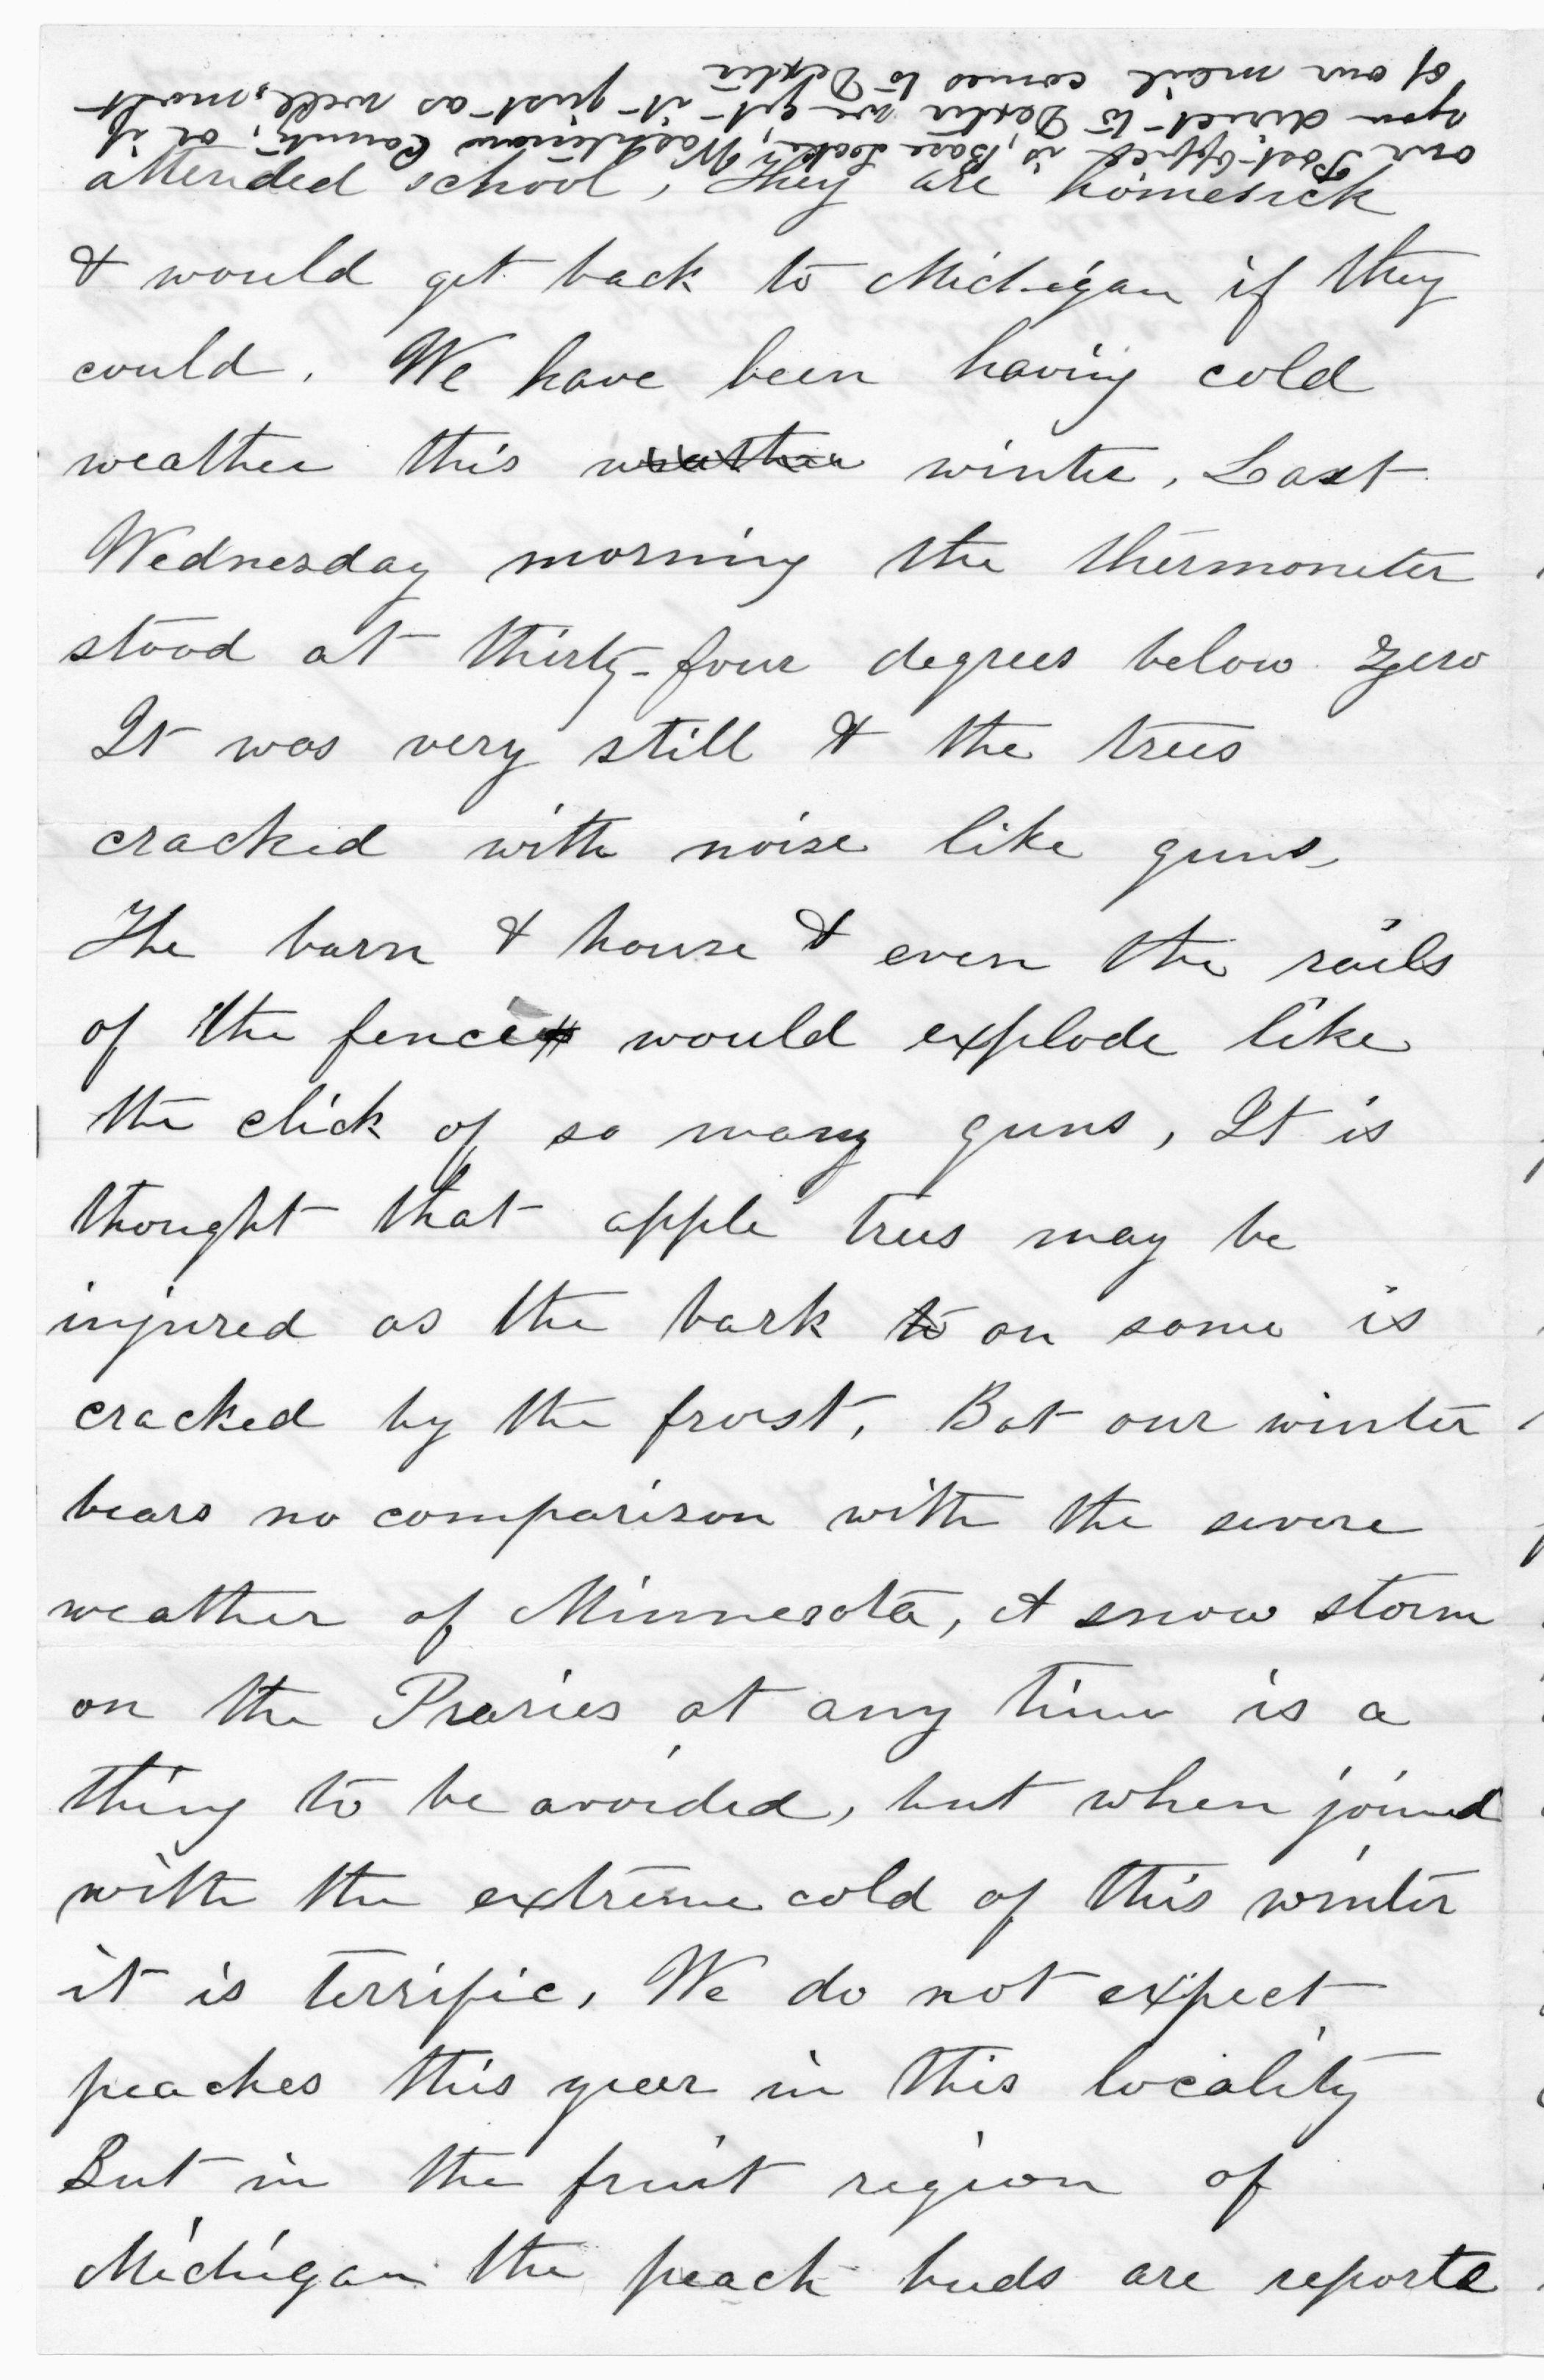 our Post-Office is, Base Lake, Washtenaw County, or if
you direct to Dexter we get it just as well, most
of our mail comes to Dexter
attended school, They are homesick
& would get back to Michigan if they
could. We have been having cold
weather this weather winter, Last
Wednesday morning the thermometer
stood at thirty-four degrees below zero
It was very still & the trees
cracked with noise like guns,
The barn & house & even the rails
of the fence would explode like
the click of so many guns, It is
thought that apple trees may be
injured as the bark to on some is
cracked by the frost, But our winter
bears no comparison with the severe
weather of Minnesota, A snow storm
on the Praries at any time is a
thing to be avoided, but when joined
with the extreme cold of this winter
it is terrific, We do not expect
peaches this year in this locality
But in the fruit region of
Michigan the peach buds are reporte